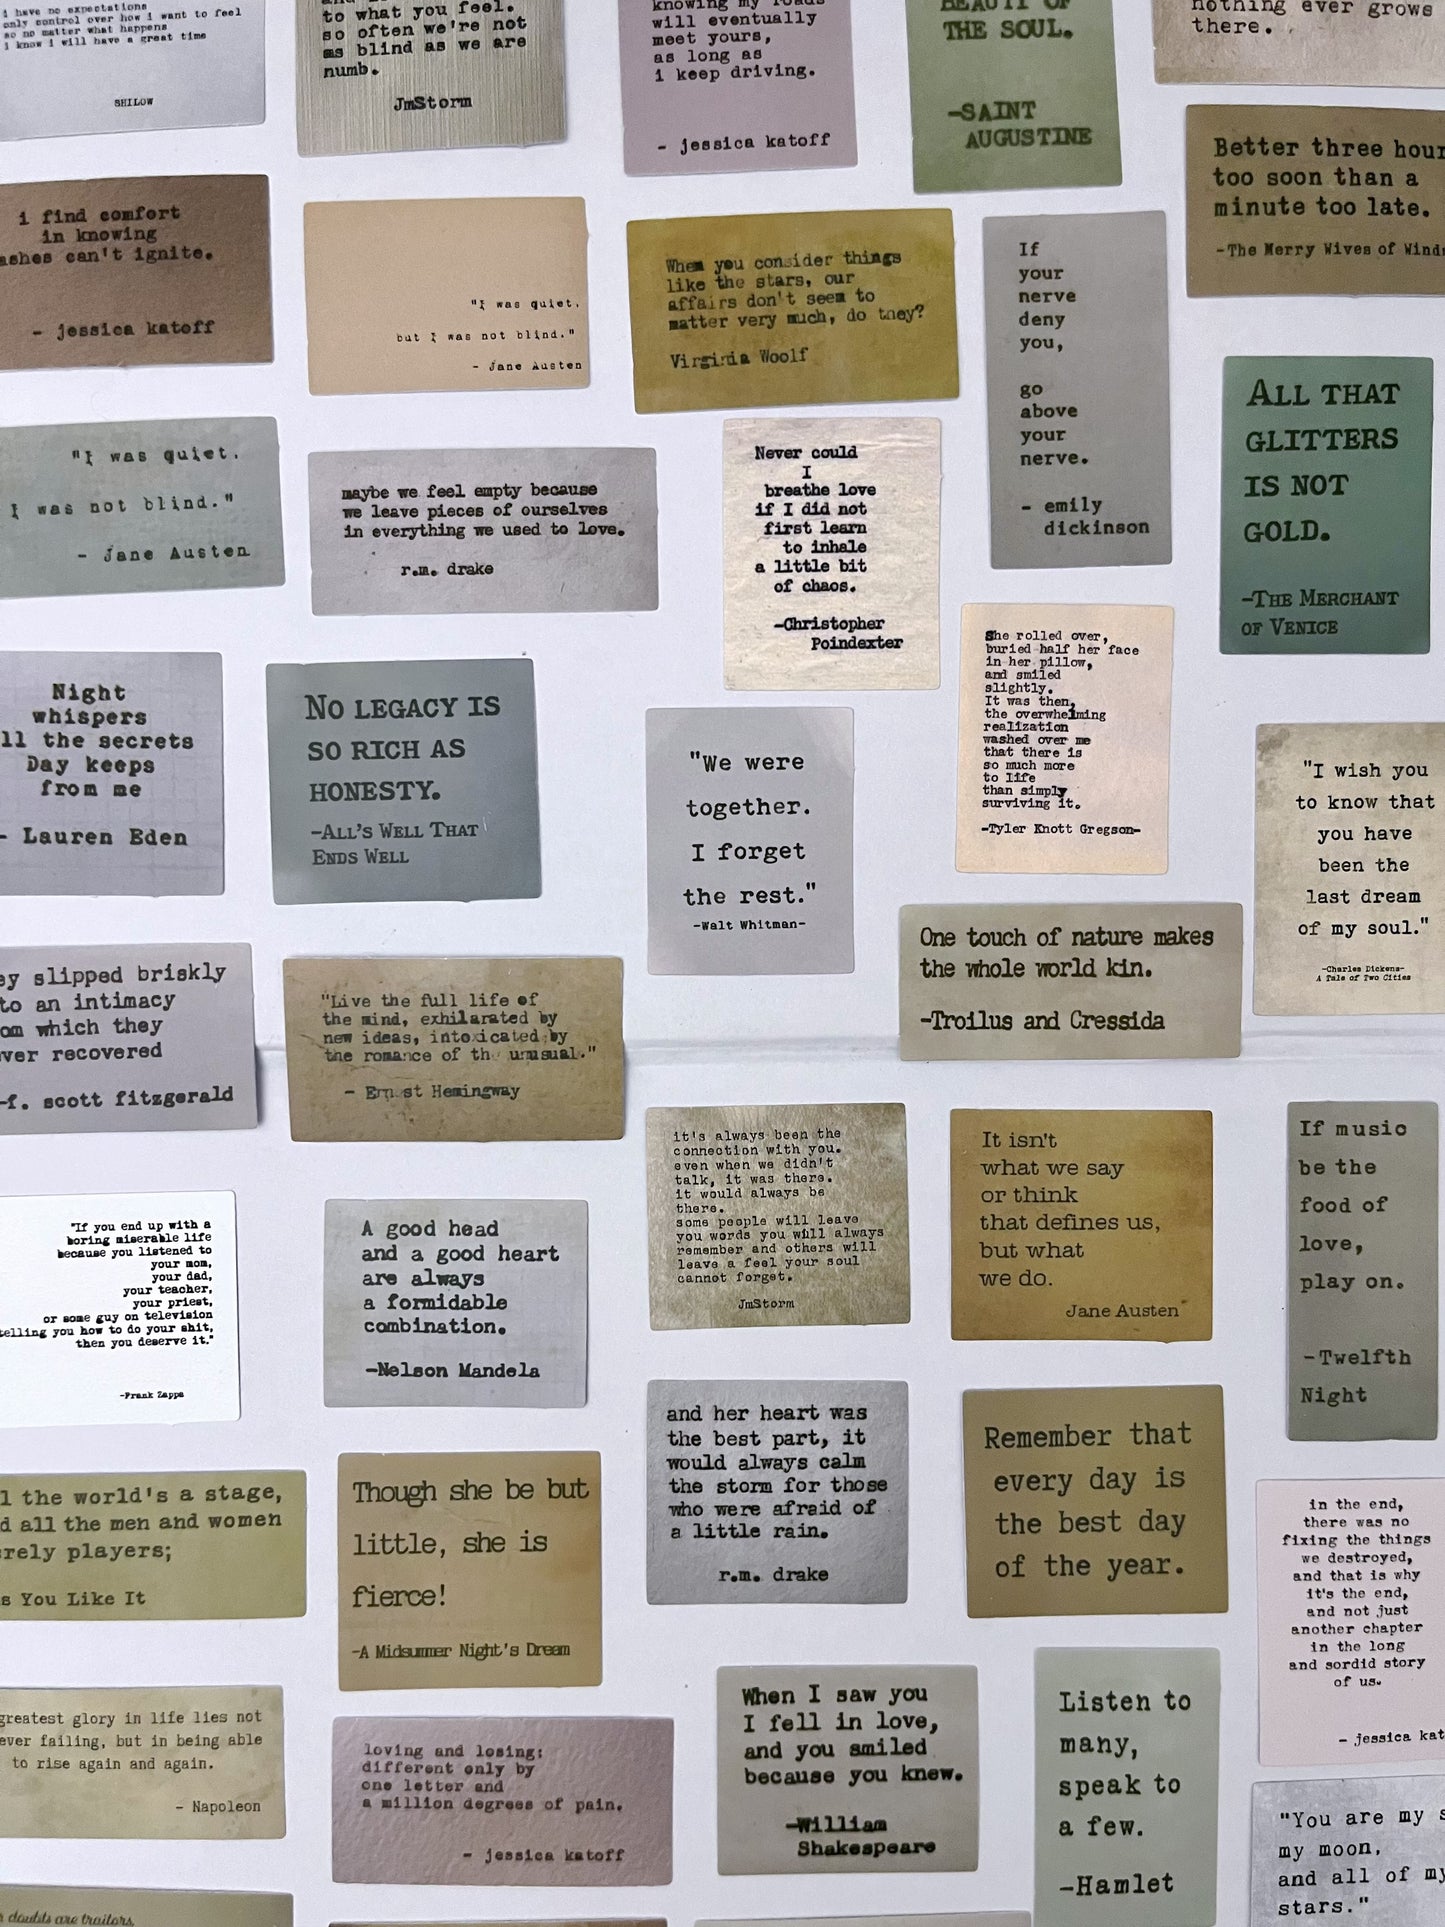 i have no expectations
only control over how i want to feel
so no matter what happens
i know i will have a great time
SHILOW
to what you feel.
so often we're not
as blind as we are
numb.
JmStorm
knowing my roads
will eventually
meet yours,
as long as
i keep driving.
- jessica katoff
BEAUTY OF
THE SOUL.
-SAINT
AUGUSTINE
nothing ever grows
there.
Better three hour
too soon than a
minute too late.
-The Merry Wives of Wind
i find comfort
in knowing
ashes can't ignite.
- jessica katoff
"I was quiet,
but I was not blind."
- Jane Austen
When you consider things
like the stars, our
affairs don't seem to
matter very much, do they?
Virginia Woolf
If
your
nerve
deny
you,
go
above
your
nerve.
- emily
dickinson
ALL THAT
GLITTERS
IS NOT
GOLD.
-THE MERCHANT
OF VENICE
"I was quiet,
I was not blind."
- Jane Austen
maybe we feel empty because
we leave pieces of ourselves
in everything we used to love.
r.m. drake
Never could
I
breathe love
if I did not
first learn
to inhale
a little bit
of chaos.
-Christopher
Poindexter
She rolled over,
buried half her face
in her pillow,
and smiled
slightly.
It was then,
the overwhelming
realization
washed over me
that there is
so much more
to life
than simply
surviving it.
-Tyler Knott Gregson-
Night
whispers
ll the secrets
Day keeps
from me
- Lauren Eden
NO LEGACY IS
SO RICH AS
HONESTY.
-ALL'S WELL THAT
ENDS WELL
"We were
together.
I forget
the rest."
-Walt Whitman-
"I wish you
to know that
you have
been the
last dream
of my soul."
-Charles Dickens-
A Tale of Two Cities
One touch of nature makes
the whole world kin.
-Troilus and Cressida
ey slipped briskly
to an intimacy
om which they
ver recovered
-f. scott fitzgerald
"Live the full life of
the mind, exhilarated by
new ideas, intoxicated by
the romance of the unusual."
- Ernest Hemingway
it's always been the
connection with you.
even when we didn't
talk, it was there.
it would always be
there.
some people will leave
you words you will always
remember and others will
leave a feel your soul
cannot forget.
JmStorm
It isn't
what we say
or think
that defines us,
but what
we do.
Jane Austen
If music
be the
food of
love,
play on.
-Twelfth
Night
"If you end up with a
boring miserable life
because you listened to
your mom,
your dad,
your teacher,
your priest,
or some guy on television
telling you how to do your shit,
then you deserve it."
-Frank Zappa
A good head
and a good heart
are always
a formidable
combination.
-Nelson Mandela
and her heart was
the best part, it
would always calm
the storm for those
who were afraid of
a little rain.
r.m. drake
Remember that
every day is
the best day
of the year.
in the end,
there was no
fixing the things
we destroyed,
and that is why
it's the end,
and not just
another chapter
in the long
and sordid story
of us.
- jessica kat
l the world's a stage,
d all the men and women
rely players;
s You Like It
Though she be but
little, she is
fierce!
-A Midsummer Night's Dream
greatest glory in life lies not
ever failing, but in being able
to rise again and again.
- Napoleon
loving and losing:
different only by
one letter and
a million degrees of pain.
- jessica katoff
When I saw you
I fell in love,
and you smiled
because you knew.
-William
Shakespeare
Listen to
many,
speak to
a few.
-Hamlet
"You are my s
my moon,
and all of my
stars."
doubts are traitors,